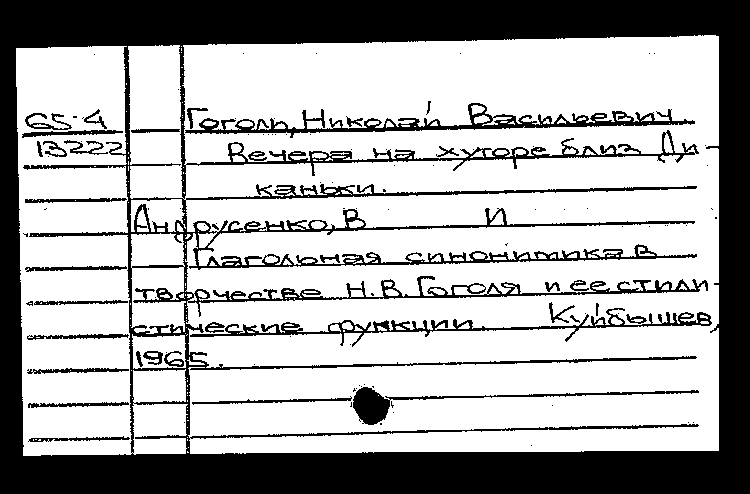 65-4 Гоголь, Николай Васильевич
13222 Вечера на хуторе близ Ди-
каньки.
Андрусенко, В И
Глагольная синонимика в
творчестве Н.В. Гоголя и ее стили-
стические функции. Куйбышев,
1965.